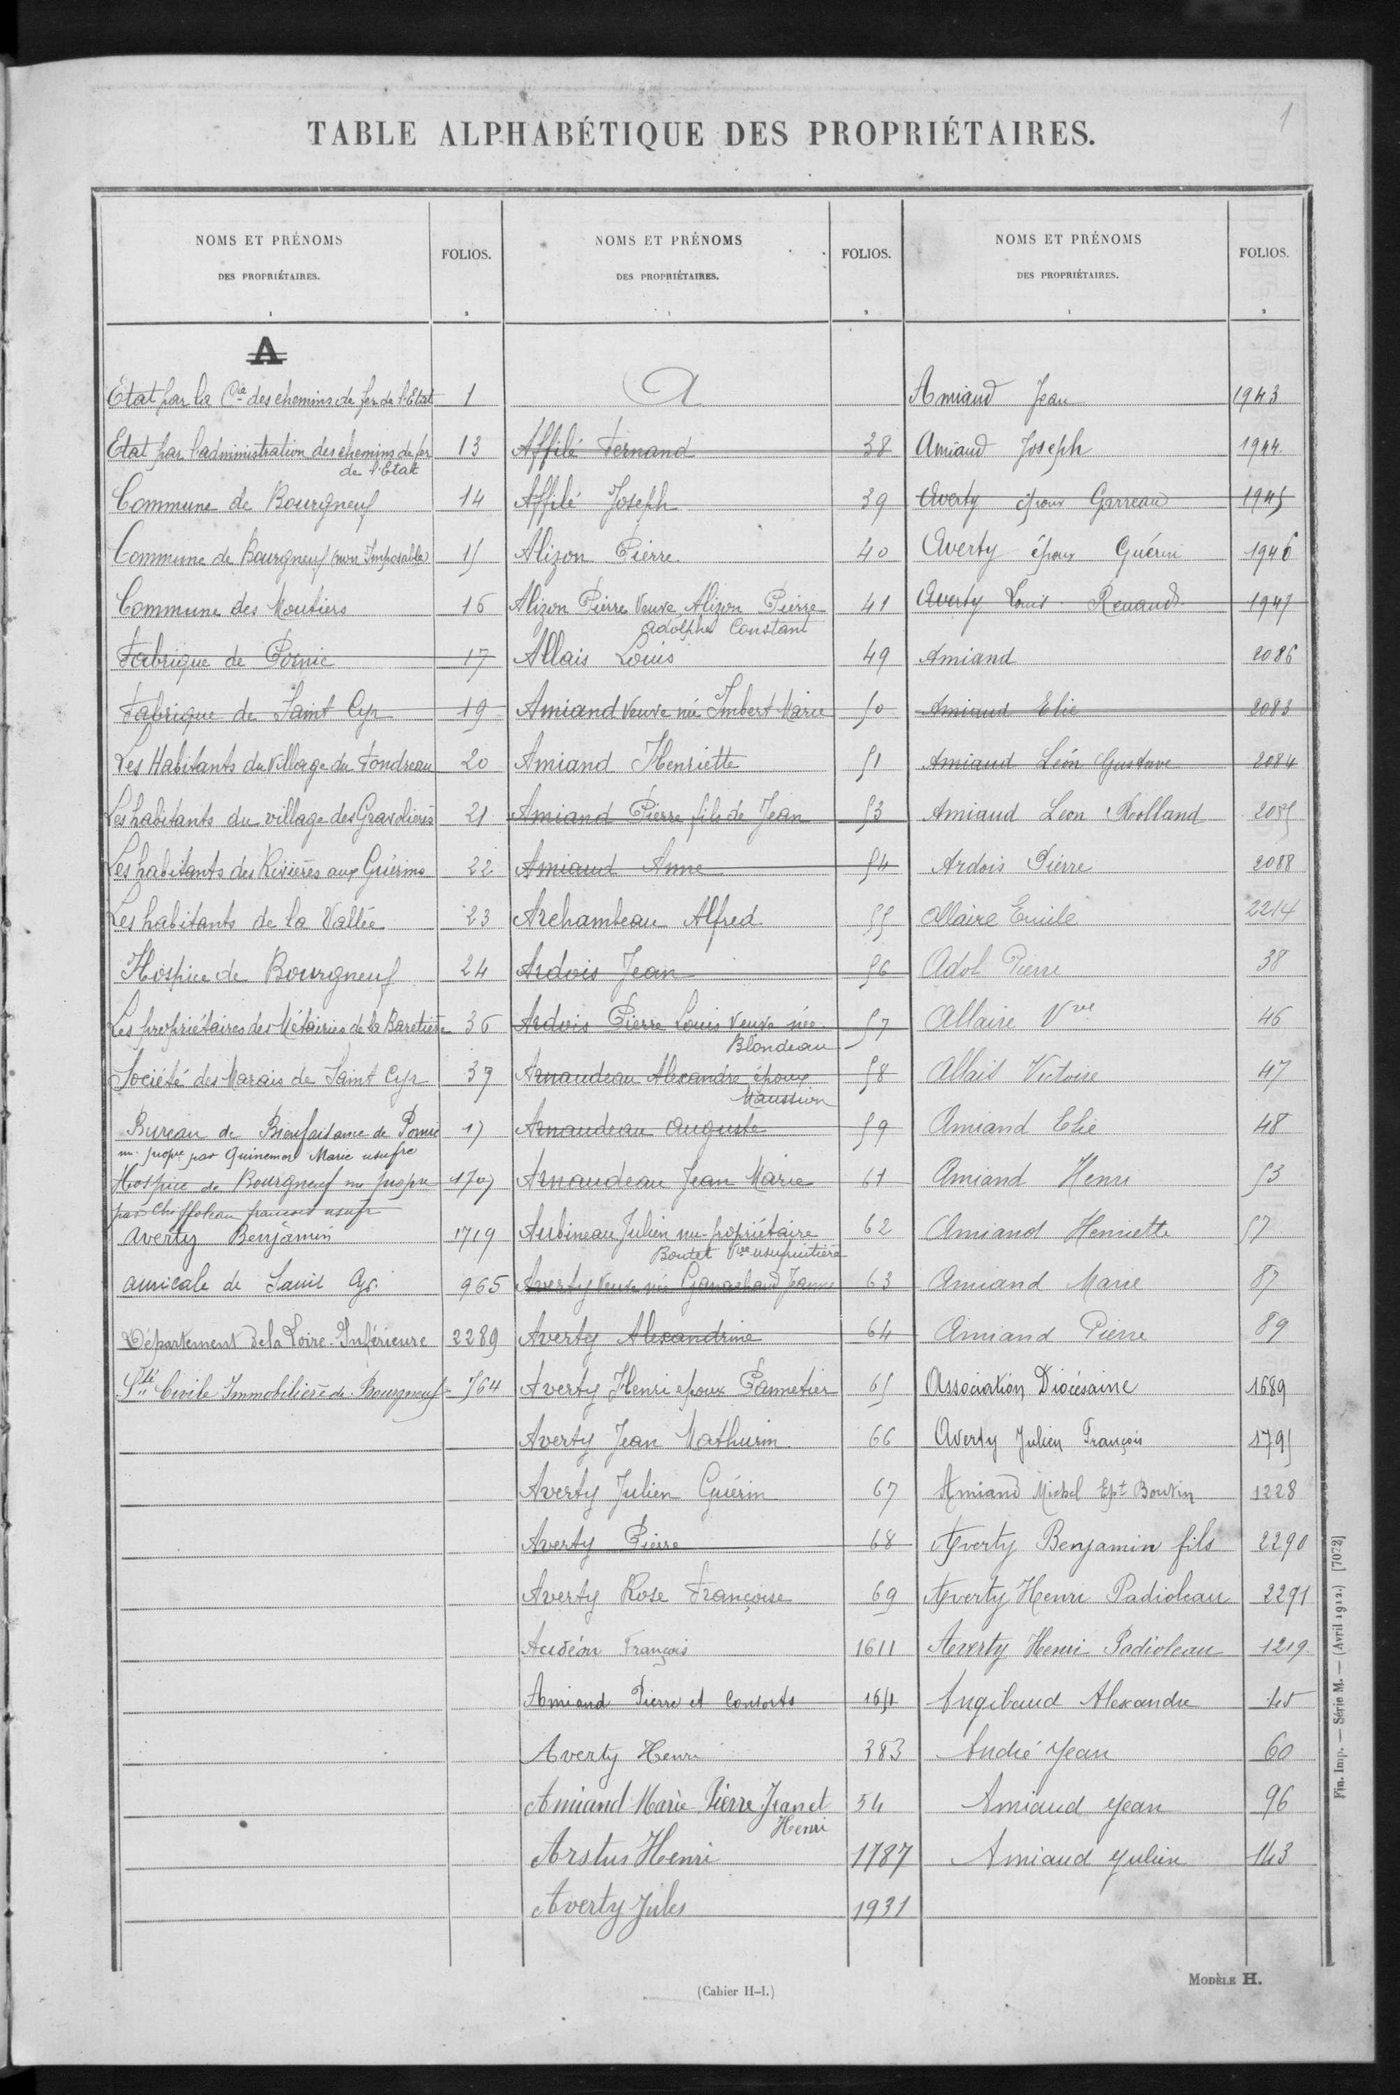 1
TABLE ALPHABÉTIQUE DES PROPRIÉTAIRES.
NOMS ET PRÉNOMS
DES PROPRIÉTAIRES.
1
FOLIOS.
2
A
Etat par la Cie des chemins de fer de l'Etat 1
Etat par l'administration des chemins de fer 13
de l'Etat
Commune de Bourgneuf 14
Commune de Bourgneuf (non Imposable) 15
Commune des Moutiers 16
Fabrique de Pornic 17
Fabrique de Saint Cyr 19
Les Habitants du Village du Fondreau 20
Les habitants du village des Gravolières 21
Les habitants des Rivières aux Guérins 22
Les habitants de la Vallée 23
Hospice de Bourgneuf 24
Les propriétaires des Métairies de la Baretière 36
Société des Marais de Saint Cyr 37
Bureau de Bienfaisance de Pornic 17
nu propre par Guinement Marie usufre
Hospice de Bourgneuf nu propre 1707
par Chiffoleau francois usufr
Averty Benjamin 1719
amicale de Saint Cyr 965
Département de la Loire-Inférieure 2289
Sté Civile Immobilière de Bourgneuf 764
NOMS ET PRÉNOMS
DES PROPRIÉTAIRES.
1
FOLIOS.
2
A
Affilé Fernand 38
Affilé Joseph 39
Alizon Pierre 40
Alizon Pierre Veuve Alizon Pierre 41
Adolphe Constant
Allais Louis 49
Amiand Veuve née Imbert Marie 50
Amiand Henriette 51
Amiand Pierre fils de Jean 53
Amiaud Anne 54
Archambeau Alfred 55
Ardois Jean 56
Ardois Pierre Louis Veuve née 57
Blondeau
Arnaudeau Alexandre époux 58
Maussion
Arnaudeau Auguste 59
Arnaudeau Jean Marie 61
Aubineau Julien nu-propriétaire 62
Boutet Vve usufruitière
Averty Veuve née Ganachaud Jeanne 63
Averty Alexandrine 64
Averty Henri epoux Pannetier 65
Averty Jean Mathurin 66
Averty Julien Guérin 67
Averty Pierre 68
Averty Rose Françoise 69
Audéon François 1611
Amiand Pierre et Consorts 1651
Averty Henri 383
Amiand Marie Pierre Jean et 54
Henri
Arstus Henri 1787
Averty Jules 1931
NOMS ET PRÉNOMS
DES PROPRIÉTAIRES.
1
FOLIOS.
2
Amiaud Jean 1943
Amiaud Joseph 1944
Averty époux Garreau 1945
Averty époux Guérin 1946
Averty Louis Renaud 1947
Amiand 2086
Amiaud Elie 2083
Amiaud Léon Gustave 2084
Amiaud Léon Rolland 2085
Ardois Pierre 2088
Allaire Emile 2214
Adol Pierre 38
Allaire Vve 46
Allais Victoire 47
Amiand Elie 48
Amiand Henri 53
Amiand Henriette 57
Amiand Marie 87
Amiand Pierre 89
Association Diocésaine 1689
Averty Julien François 1795
Amiand Michel Ept Bouvin 1228
Averty Benjamin fils 2290
Averty Henri Padioleau 2291
Averty Henri Padioleau 1219
Angibaud Alexandre 45
André Jean 60
Amiaud Jean 96
Amiaud Julien 143
Fin. Imp. — Série M. — (Avril 1912.) [7072]
(Cahier H-I.)
MODÈLE H.